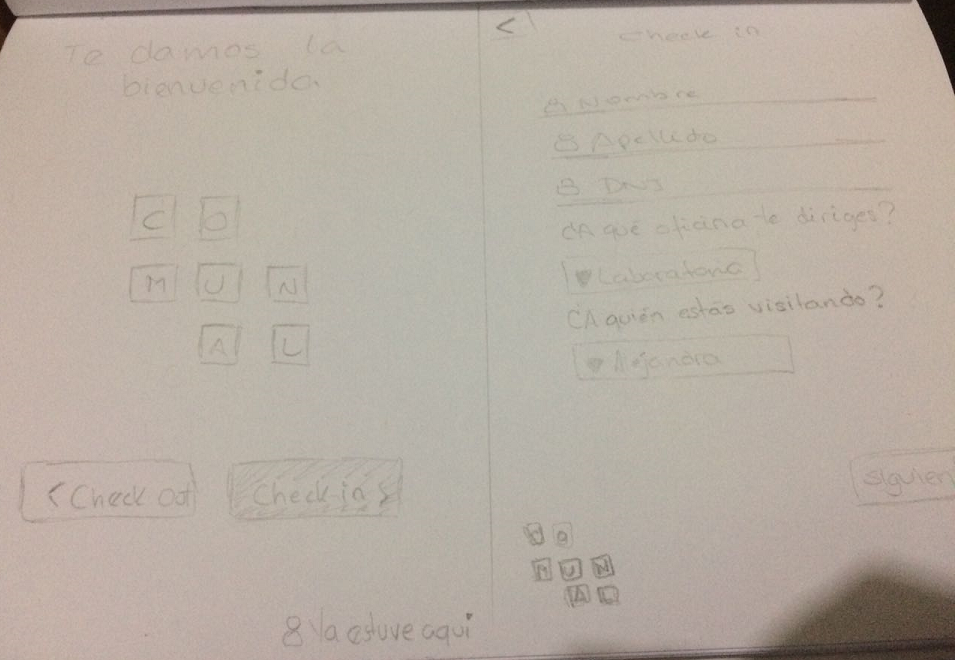 Te damos la
bienvenida.
C O
M U N
A L
< Check out
Check in >
Ya estuve aqui
<
Check in
Nombre
Apellido
DNI
¿A qué oficina te diriges?
Laboratoria
¿A quién estás visitando?
Alejandra
siguien
C O
M U N
A L